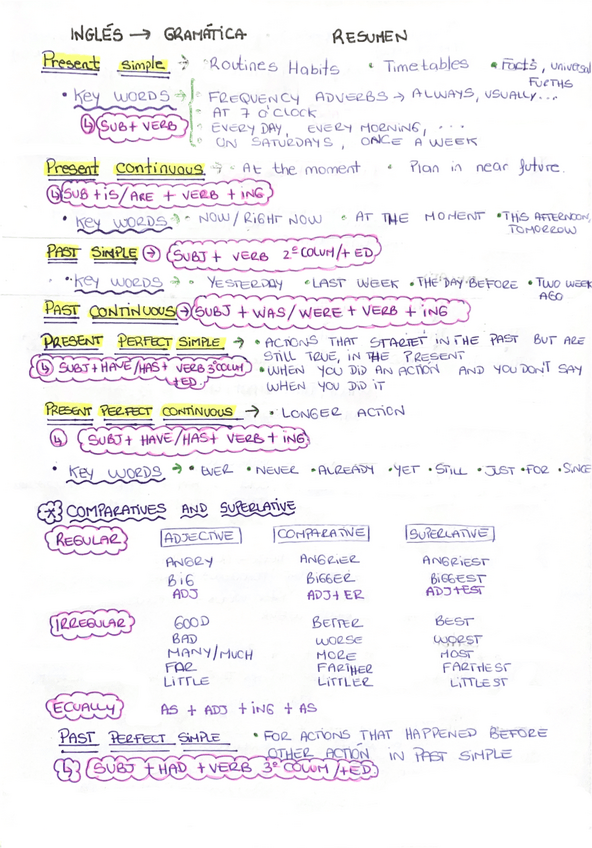 INGLÉS → GRAMÁTICA RESUMEN
Present simple → • Routines Habits • Timetables • Facts, universal
FURTHS
• KEY WORDS → • FREQUENCY ADVERBS → ALWAYS, USUALLY...
• AT 7 O'CLOCK
↳ SUBJ + VERB • EVERY DAY, EVERY MORNING, ...
• ON SATURDAYS, ONCE A WEEK
Present continuous → • At the moment • Plan in near future.
↳ SUB + IS/ARE + VERB + ING
• KEY WORDS → • NOW/RIGHT NOW • AT THE MOMENT • THIS AFTERNOON,
TOMORROW
PAST SIMPLE → SUBJ + VERB 2ª COLUM/+ ED
• KEY WORDS → • YESTERDAY • LAST WEEK • THE DAY BEFORE • TWO WEEK
AGO
PAST CONTINUOUS → SUBJ + WAS/WERE + VERB + ING
PRESENT PERFECT SIMPLE → • ACTIONS THAT STARTET IN THE PAST BUT ARE
STILL TRUE, IN THE PRESENT
↳ SUBJ + HAVE/HAS + VERB 3ª COLUM • WHEN YOU DID AN ACTION AND YOU DON'T SAY
+ED WHEN YOU DID IT
PRESENT PERFECT CONTINUOUS → • LONGER ACTION
↳ SUBJ + HAVE/HAS + VERB + ING
• KEY WORDS → • EVER • NEVER • ALREADY • YET • STILL • JUST • FOR • SINCE
* COMPARATIVES AND SUPERLATIVE
REGULAR ADJECTIVE COMPARATIVE SUPERLATIVE
ANGRY ANGRIER ANGRIEST
BIG BIGGER BIGGEST
ADJ ADJ + ER ADJ + EST
IRREGULAR GOOD BETTER BEST
BAD WORSE WORST
MANY/MUCH MORE MOST
FAR FARTHER FARTHEST
LITTLE LITTLER LITTLEST
ECUALLY AS + ADJ + ING + AS
PAST PERFECT SIMPLE • FOR ACTIONS THAT HAPPENED BEFORE
OTHER ACTION IN PAST SIMPLE
↳ SUBJ + HAD + VERB 3ª COLUM/+ED